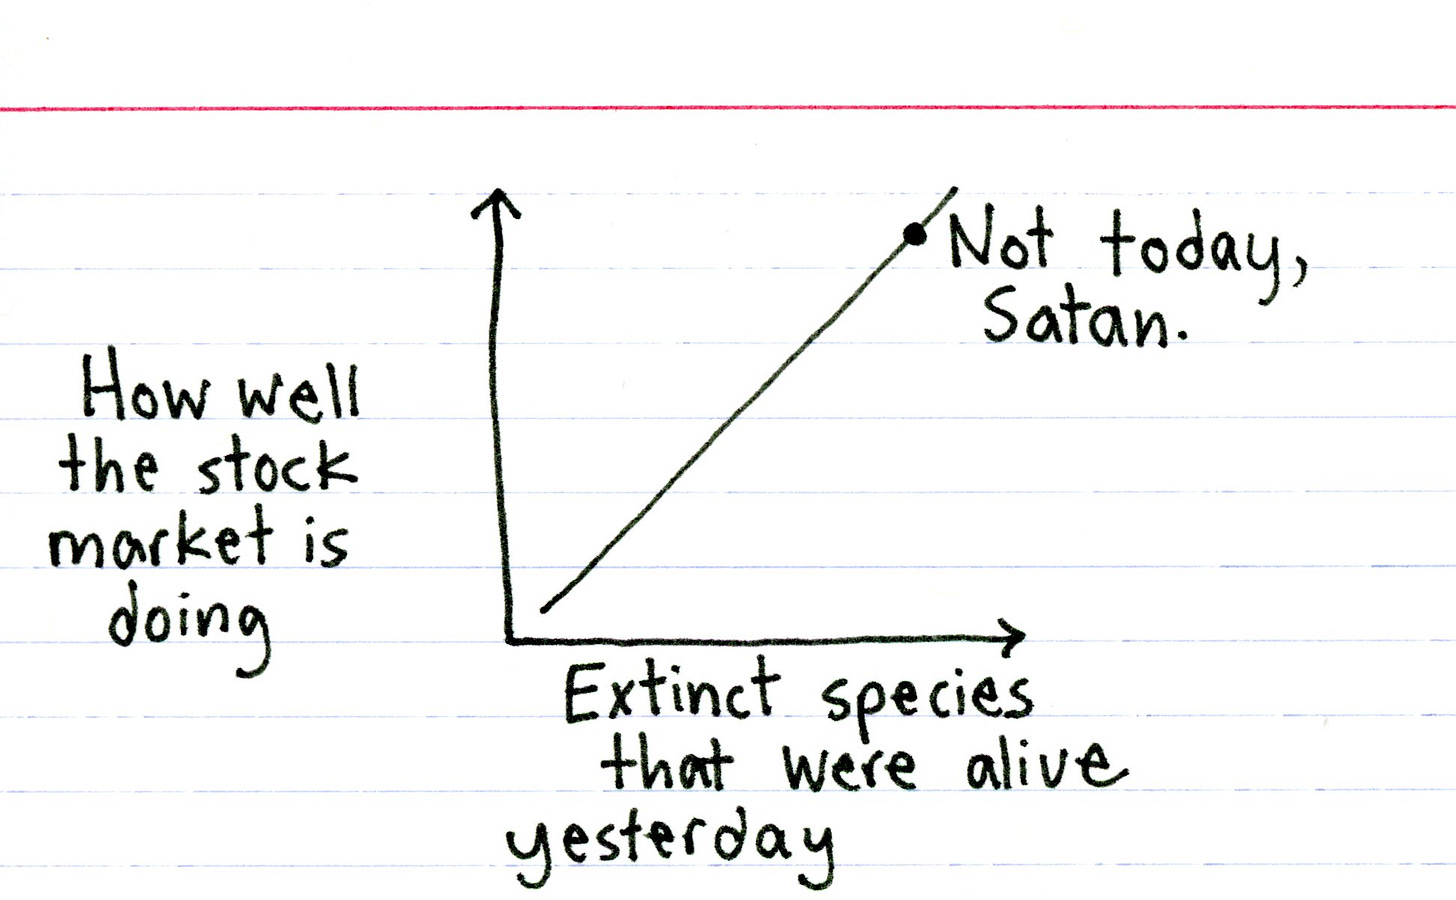 Not today,
Satan.
How well
the stock
market is
doing
Extinct species
that were alive
yesterday